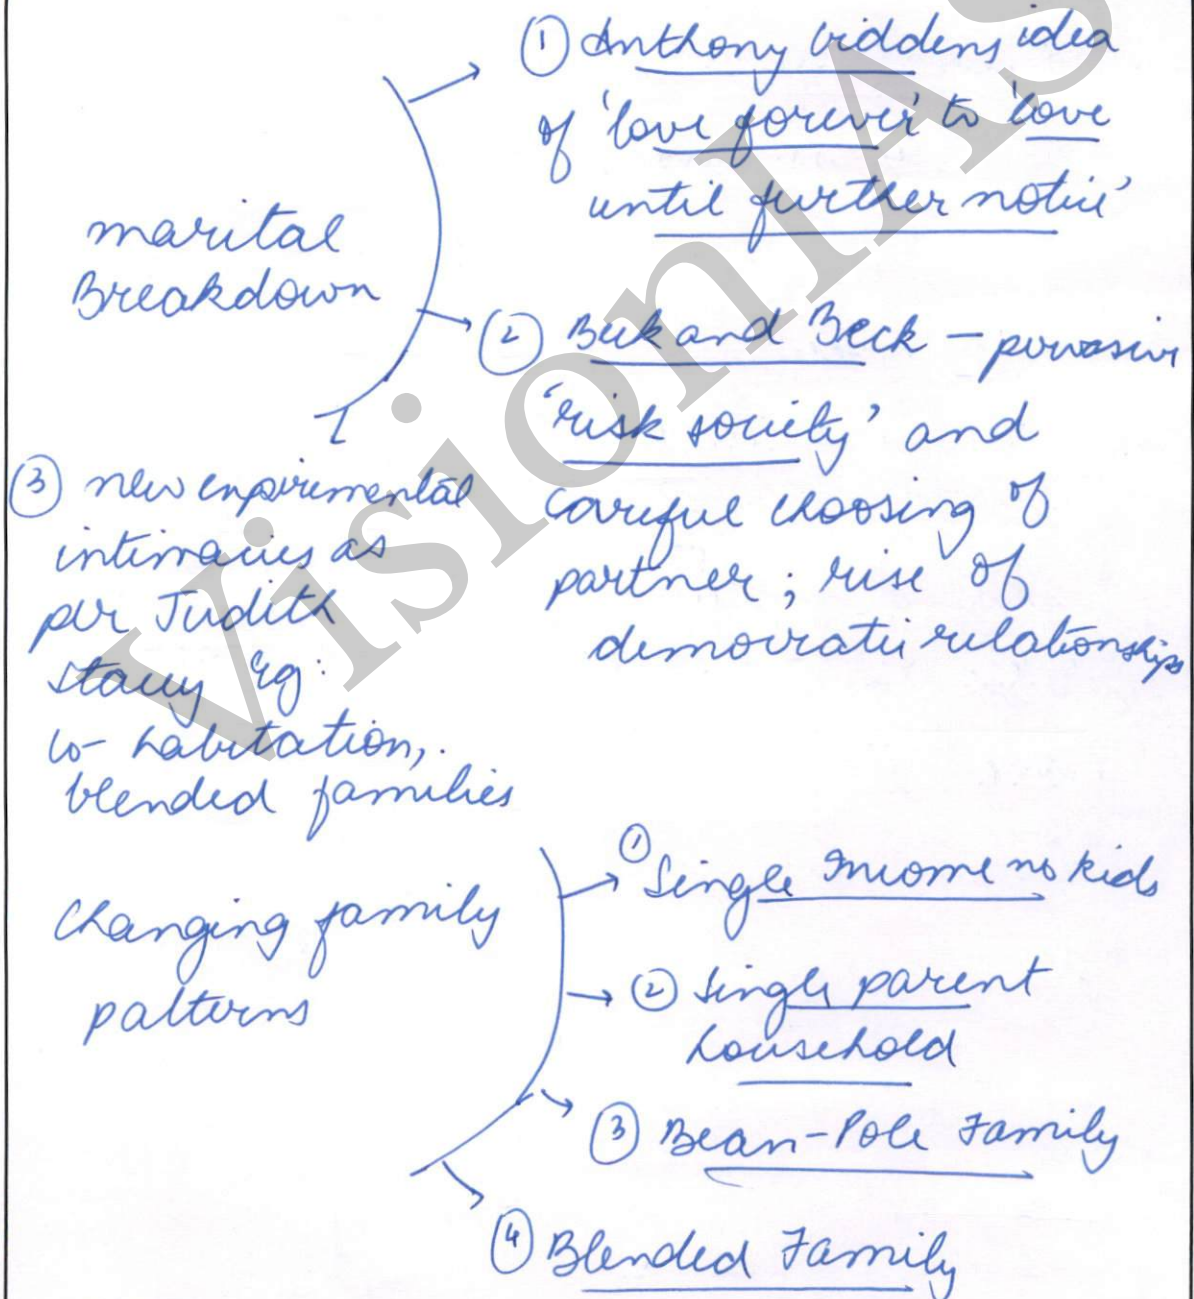 ① Anthony Giddens idea
of 'love forever' to 'love
until further notice'
marital
Breakdown
② Beck and Beck – pervasive
'risk society' and
careful choosing of
partner; rise of
democratic relationships
③ new expiremental
intimacies as
per Judith
Stacey Eg:
co-habitation,
blended families
Changing family
patterns
① Single Income no kids
② Single parent
household
③ Bean-Pole Family
④ Blended Family
VisionIAS